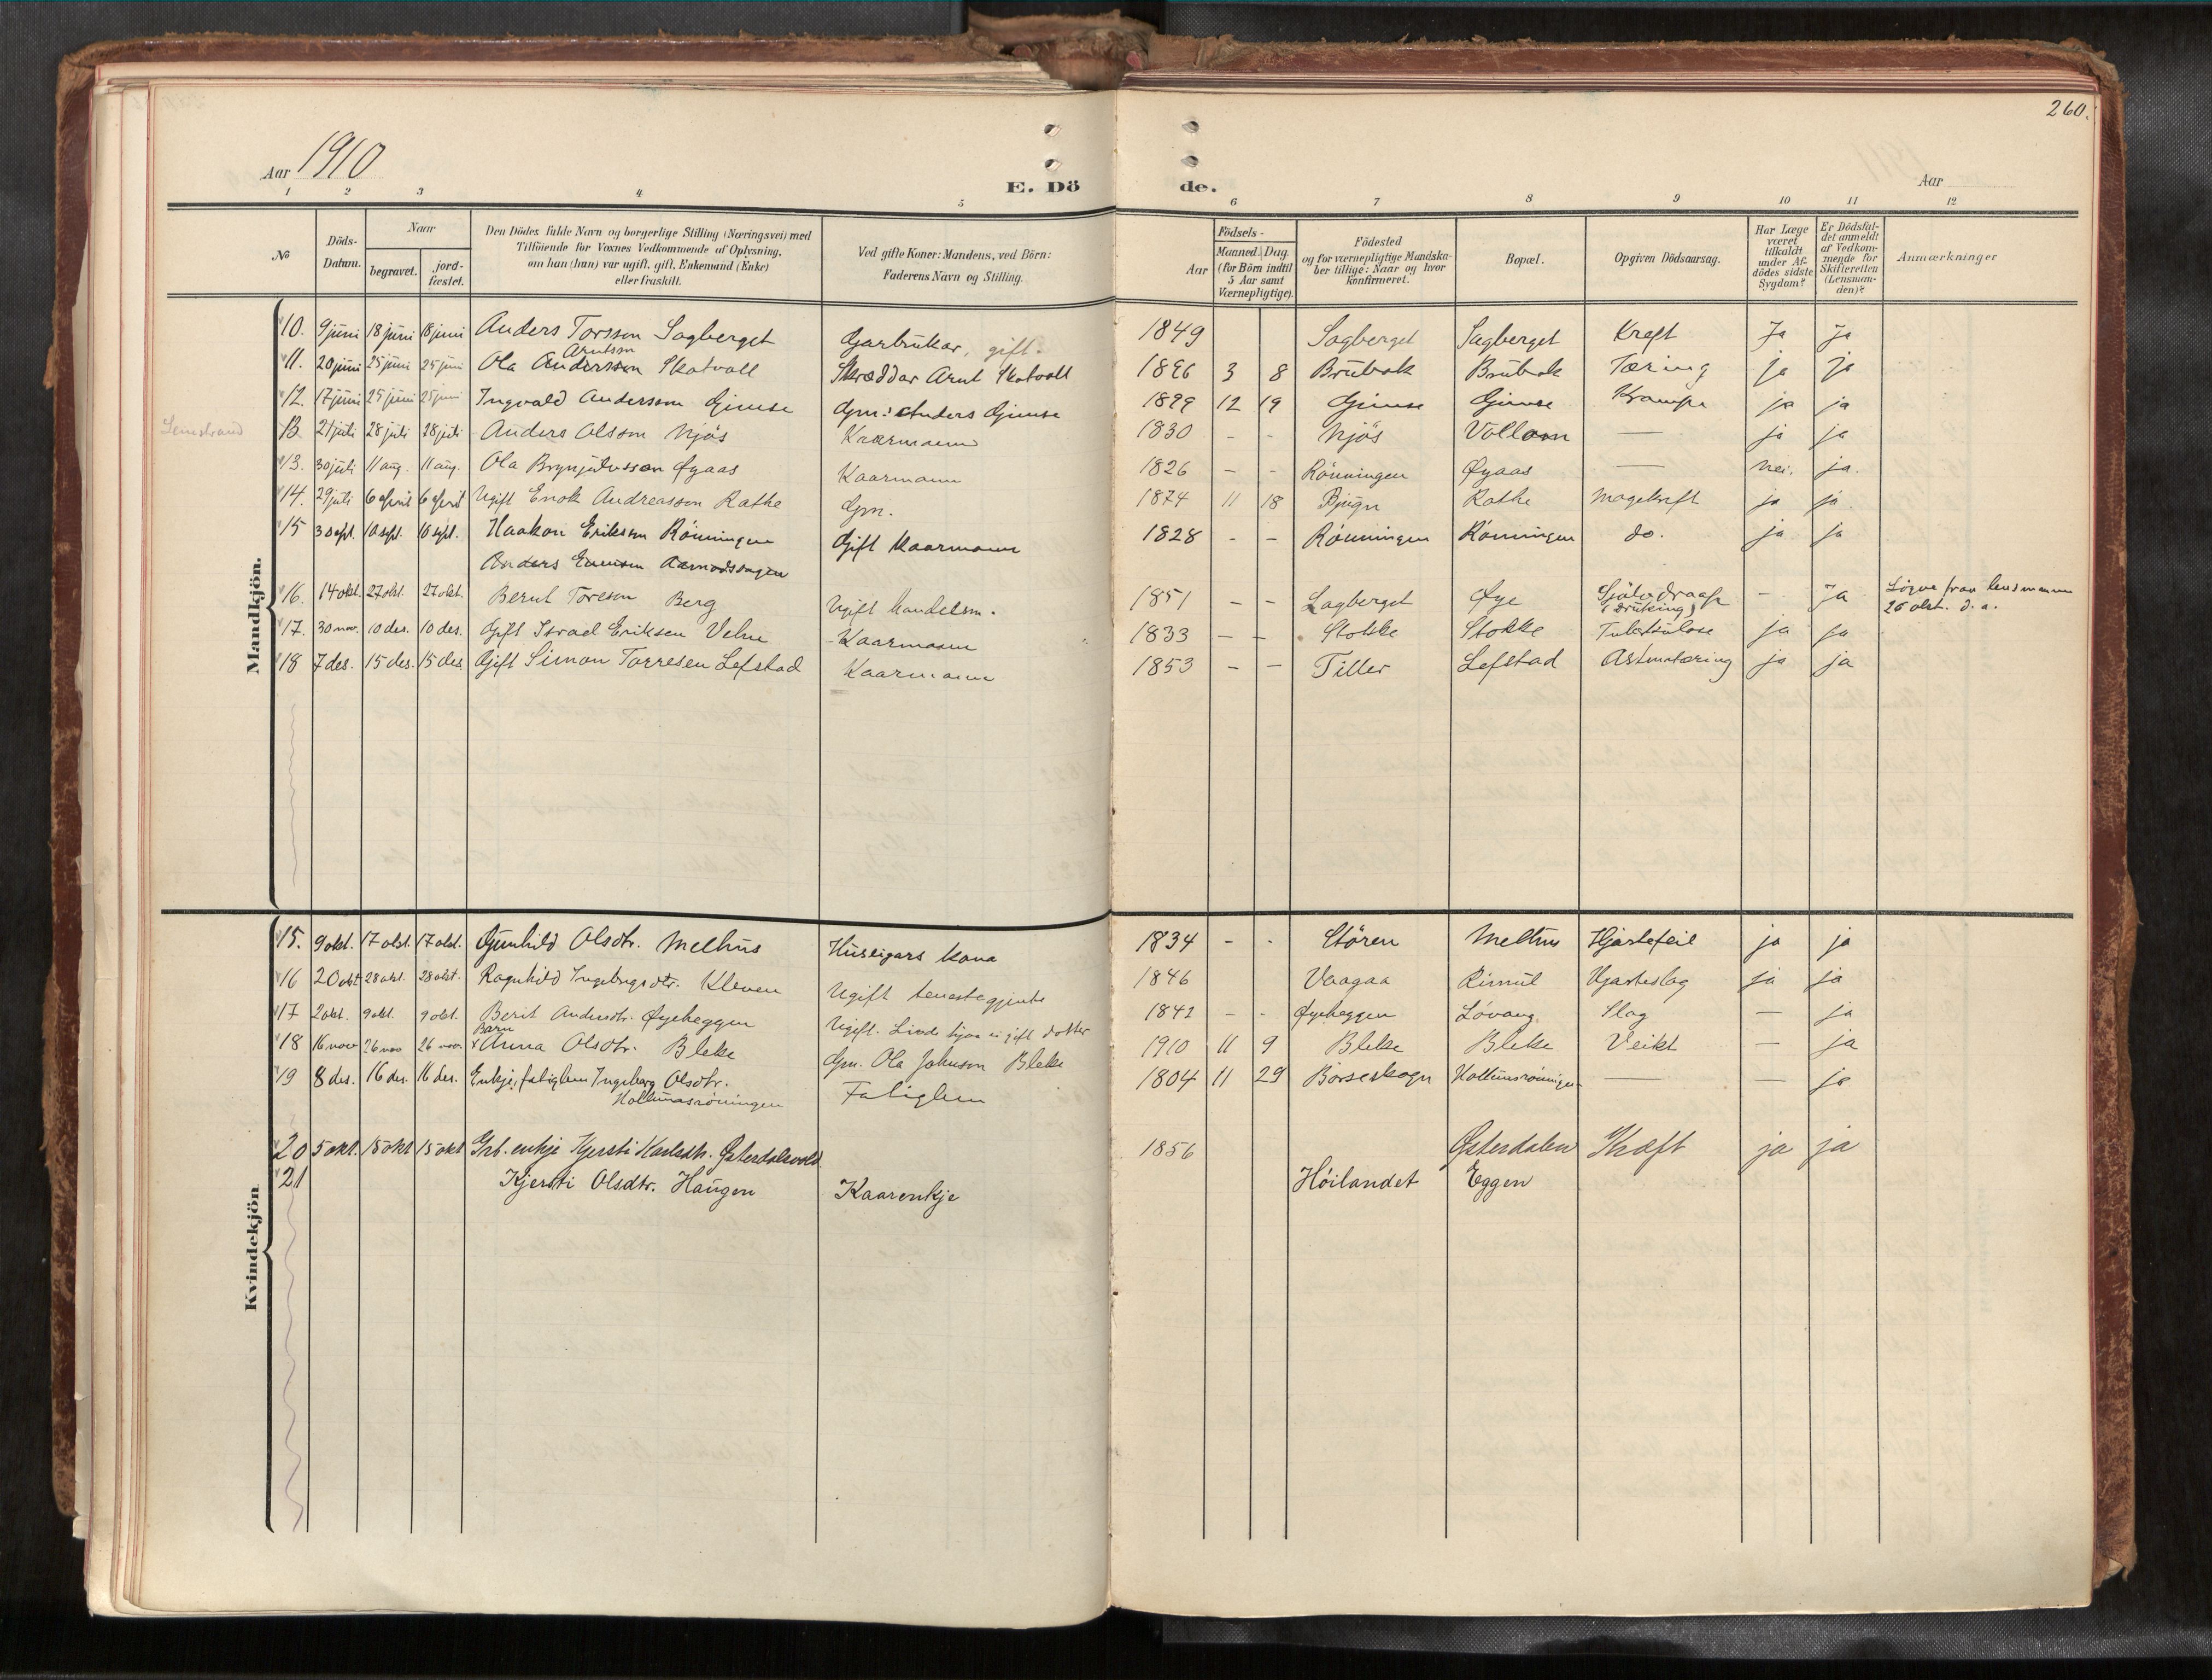 260.
Aar 1910
E. Dö de.
Aar
1 2 3 4 5 6 7 8 9 10 11 12
No
Döds-Datum.
Naar
begravet. jord-fæstet.
Den Dödes fulde Navn og borgerlige Stilling (Næringsvei) med Tilföiende for Voxnes Vedkommende af Oplysning, om han (hun) var ugift, gift, Enkemand (Enke) eller fraskilt.
Ved gifte Koner: Mandens, ved Börn: Faderens Navn og Stilling.
Födsels-
Aar Maaned. Dag.
(for Börn indtil 5 Aar samt Værnepligtige).
Födested og for værnepligtige Mandskaber tillige: Naar og hvor konfirmeret.
Bopæl.
Opgiven Dödsaarsag.
Har Læge været tilkaldt under Afdödes sidste Sygdom?
Er Dödsfaldet anmeldt af Vedkommende for Skifteretten (Lensmanden)?
Anmærkninger
Mandkjön.
10. 9 juni 18 juni 18 juni Anders Torsson Sagberget Garbrukar, gift. 1849 Sagberget Sagberget Kreft Ja Ja
Arntson
11. 20 juni 25 juni 25 juni Ola Andersson Skatvoll Skræddar Arnt Skatvoll 1896 3 8 Brubak Brubak Tæring ja ja
12. 17 juni 25 juni 25 juni Ingvald Andersson Gimse Gm: Anders Gimse 1899 12 19 Gimse Gimse Krampe ja ja
Leinstrand 13. 21 juli 28 juli 28 juli Anders Olsson Mjös Kaarmann 1830 - - Mjös — ja ja
13. 30 juli 11 aug. 11 aug. Ola Brynjulvsson Øyaas Kaarmann 1826 - - Rönningen Øyaas — nei. ja.
14. 29 juli 6 april 6 april Ugift Enok Andreasson Rathe Gm. 1874 11 18 Bjugn Rathe Magekreft ja ja.
15 3 sept. 10 sept. 10 sept. Haakon Erikson Rönningen Gift Kaarmann 1828 - - Rönningen Rönningen do. ja ja
Anders
16. 14 okt. 27 okt. 27 okt. Bernt Toreson Berg Ugift handelsm. 1851 - - Sagberget Øye Sjölvdraap (Drukning) - Ja 26 okt. d. a.
17. 30 nov. 10 des. 10 des. Gift Israel Eriksen Velve Kaarmann 1833 - - Stokke Stokke Tuberkulose ja ja
18 7 des. 15 des. 15 des Gift Simon Torresen Lefstad Kaarmann 1853 - - Tiller Lefstad Astmatæring ja ja
Kvindekjön
15. 9 okt. 17 okt. 17 okt. Gunhild Olsdtr. Melhus Huseigars kona 1834 - - Stören Melhus Hjartefeil ja ja
16 20 okt 28 okt. 28 okt. Ragnhild Ingebrigtsdtr. Kleven Ugift tenestegjente 1846 Vaagaa Rimul Hjarteslag ja ja
17 2 okt. 9 okt. 9 okt. Berit Andersdtr. Øyeheggen Ugift. 1842 - - Øyeheggen Løvang Slag — ja
Barn
18 16 nov 26 nov 26 nov Anna Olsdtr. Bleke Gm. Ola Johnson Bleke 1910 11 9 Bleke Bleke Veikt — ja
19 8 des. 16 des. 16 des. Enkje, fatiglem Ingeborg Olsdtr. Fatiglem 1804 11 29 Börseskogn — — ja
20 5 okt. 15 okt 15 okt Grb. enkje Kjersti Karlsdtr. Østerdalsvold 1856 Østerdalen Kræft ja ja
21 Kjersti Olsdtr. Haugen Kaarenkje Höilandet Eggen